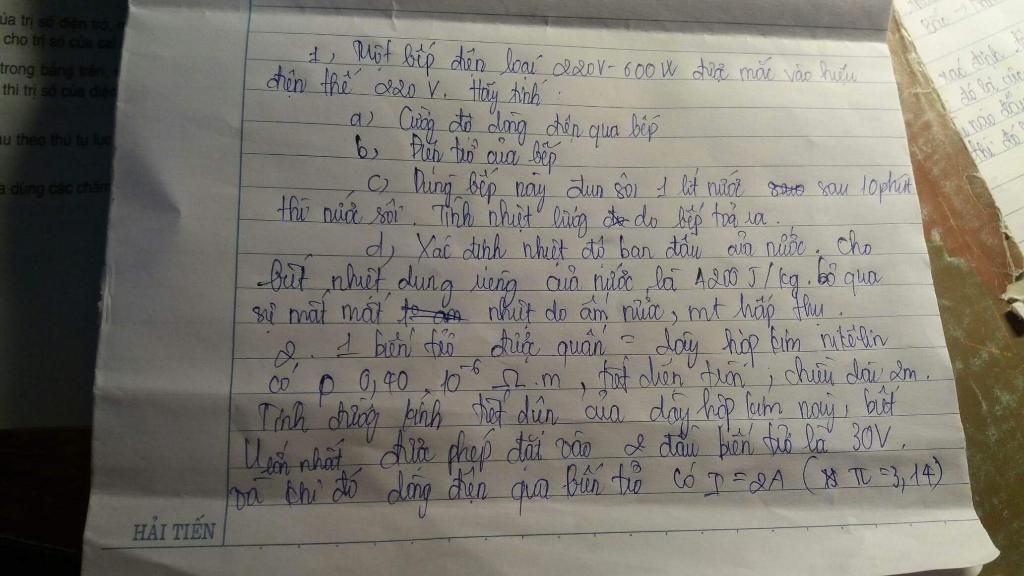 ủa trị số điện trở,
cho trị số của
trong bảng trên,
thì trị số của điện
u theo thứ tự
a dùng các
1, Một bếp điện loại 220V - 600W được mắc vào hiệu
điện thế 220 V. Hãy tính :
a, Cường độ dòng điện qua bếp
b, Điện trở của bếp
c, Dùng bếp này đun sôi 1 lít nước sau 10 phút
thì nước sôi. Tính nhiệt lượng do bếp toả ra.
d, Xác định nhiệt độ ban đầu của nước. Cho
biết nhiệt dung riêng của nước là 4200 J/kg. Bỏ qua
sự mất mát nhiệt do ấm nước, mt hấp thu.
2. 1 biến trở được quấn = dây hợp kim nikêlin
có ρ 0,40 . 10⁻⁶ Ω . m, tiết diện tròn, chiều dài 2m.
Tính đường kính tiết diện của dây hợp kim này, biết
U lớn nhất được phép đặt vào 2 đầu biến trở là 30V.
và khi đó dòng điện qua biến trở có I = 2A ( π = 3,14)
HẢI TIẾN